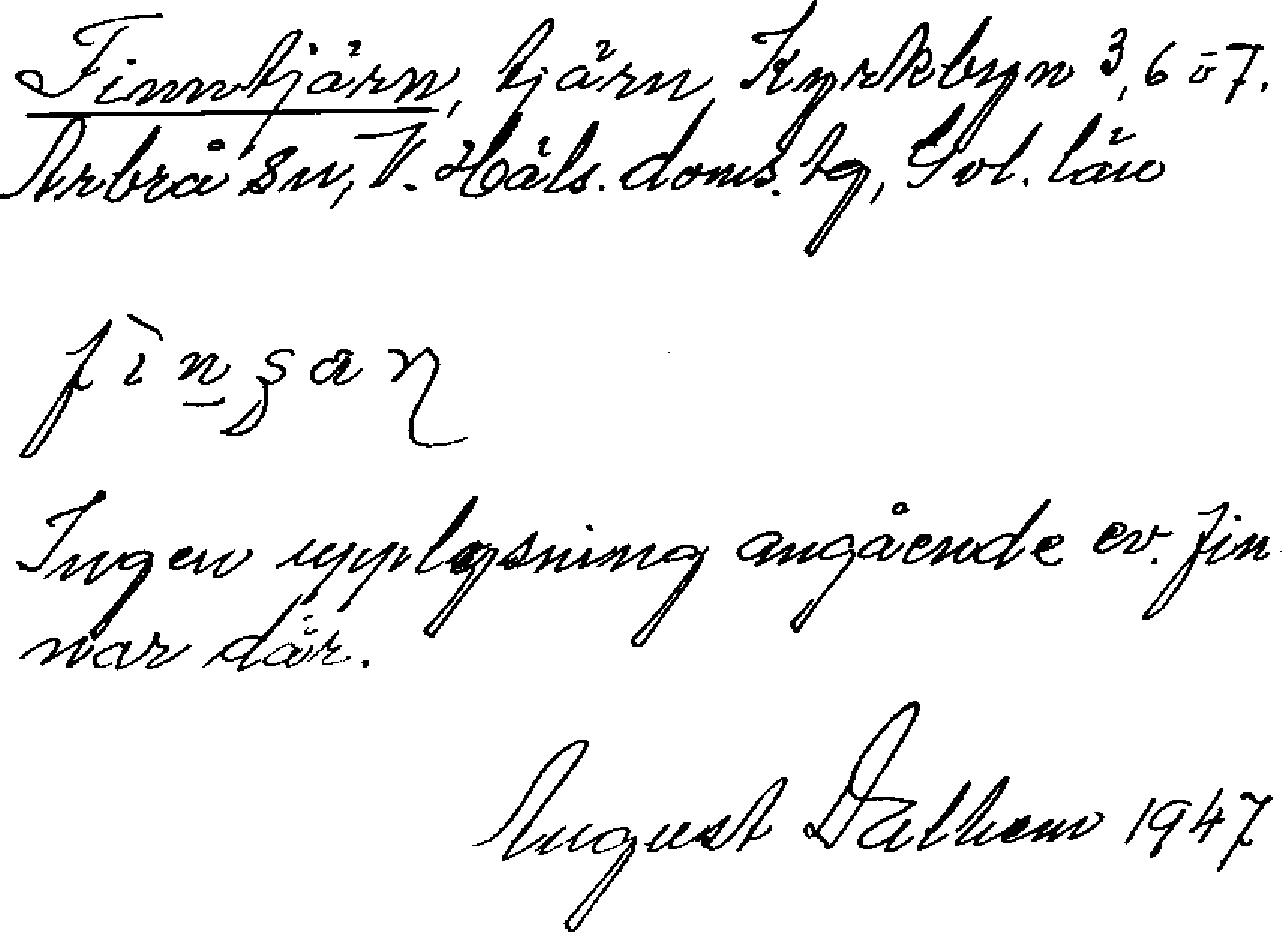 Finntjärn, tjärn, Kyrkbyn 3, 6 o 7.
Arbrå sn, V. Häls. doms. tg, Gvl. län
Ingen upplysning angående ev. fin-
nar där.
August Dalhem 1947